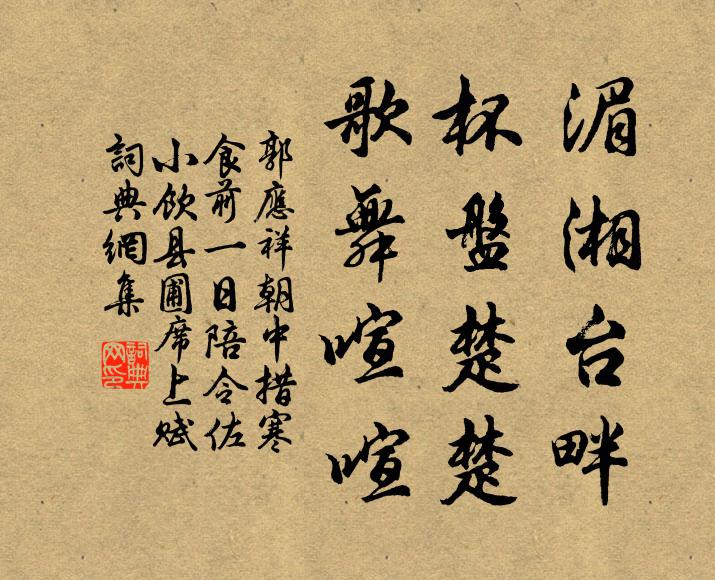 湄湘台畔
杯盤楚楚
歌舞喧喧
郭應祥朝中措寒
食前一日陪令佐
小飲县圃席上賦
詞典網集
詞典网印